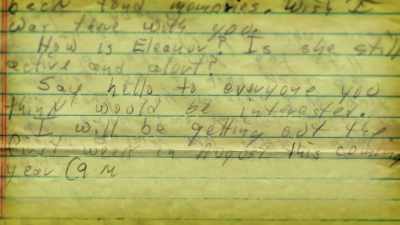 back fond memories. Wish I
was there with you.
How is Eleanor? Is she still
active and alert?
Say hello to everyone you
think would be interester.
I will be getting out the
first week in August this coming
year (9 m